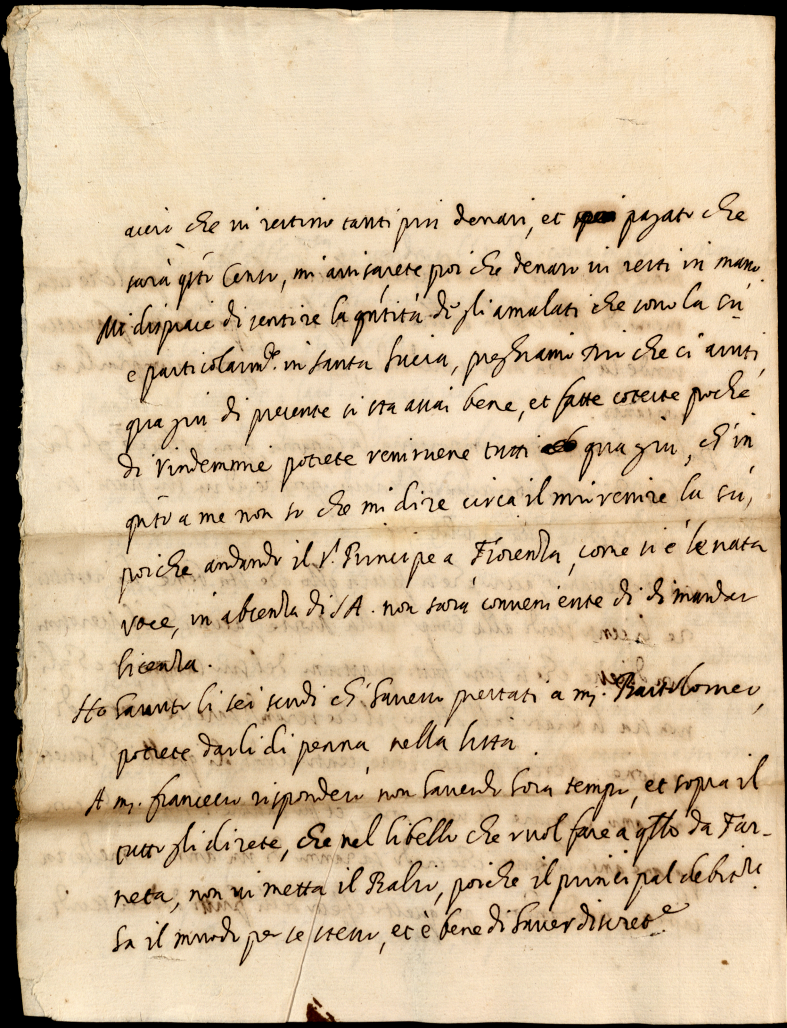 acciò che vi restino tanti più denari, et pagato che
sarà q.sto Censo, mi avisarete poi che denaro vi resti in mano
Mi dispiace di sentire la q.ntità degli amalati che sono la sù
e particolarm.te in santa Lucia, preghiamo Dio che ci aiuti,
qua giù di presente si sta assai bene, et fatte coteste poche
di Vindemmie potrete venirvene tutti qua giù, ch'in
q.nto a me non so che mi dire circa il mio venire la sù,
poiche andando il S.r Principe a Fiorenza, come si è levata
voce, in absenza di S A. non sarà conveniente di dimandar
licenza.
Ho havuto li sei scudi ch'havevo prestati a m.r Bartolomeo,
potrete darli di penna nella lista.
A m.r francesco risponderò non havendo hora tempo, et sopra il
tutto gli direte, che nel libello che vuol fare a q.llo da Far-
neta, non vi metta il Balzi, poiche il principal debitore
ha il modo per se stesso, et è bene di haver discret.e